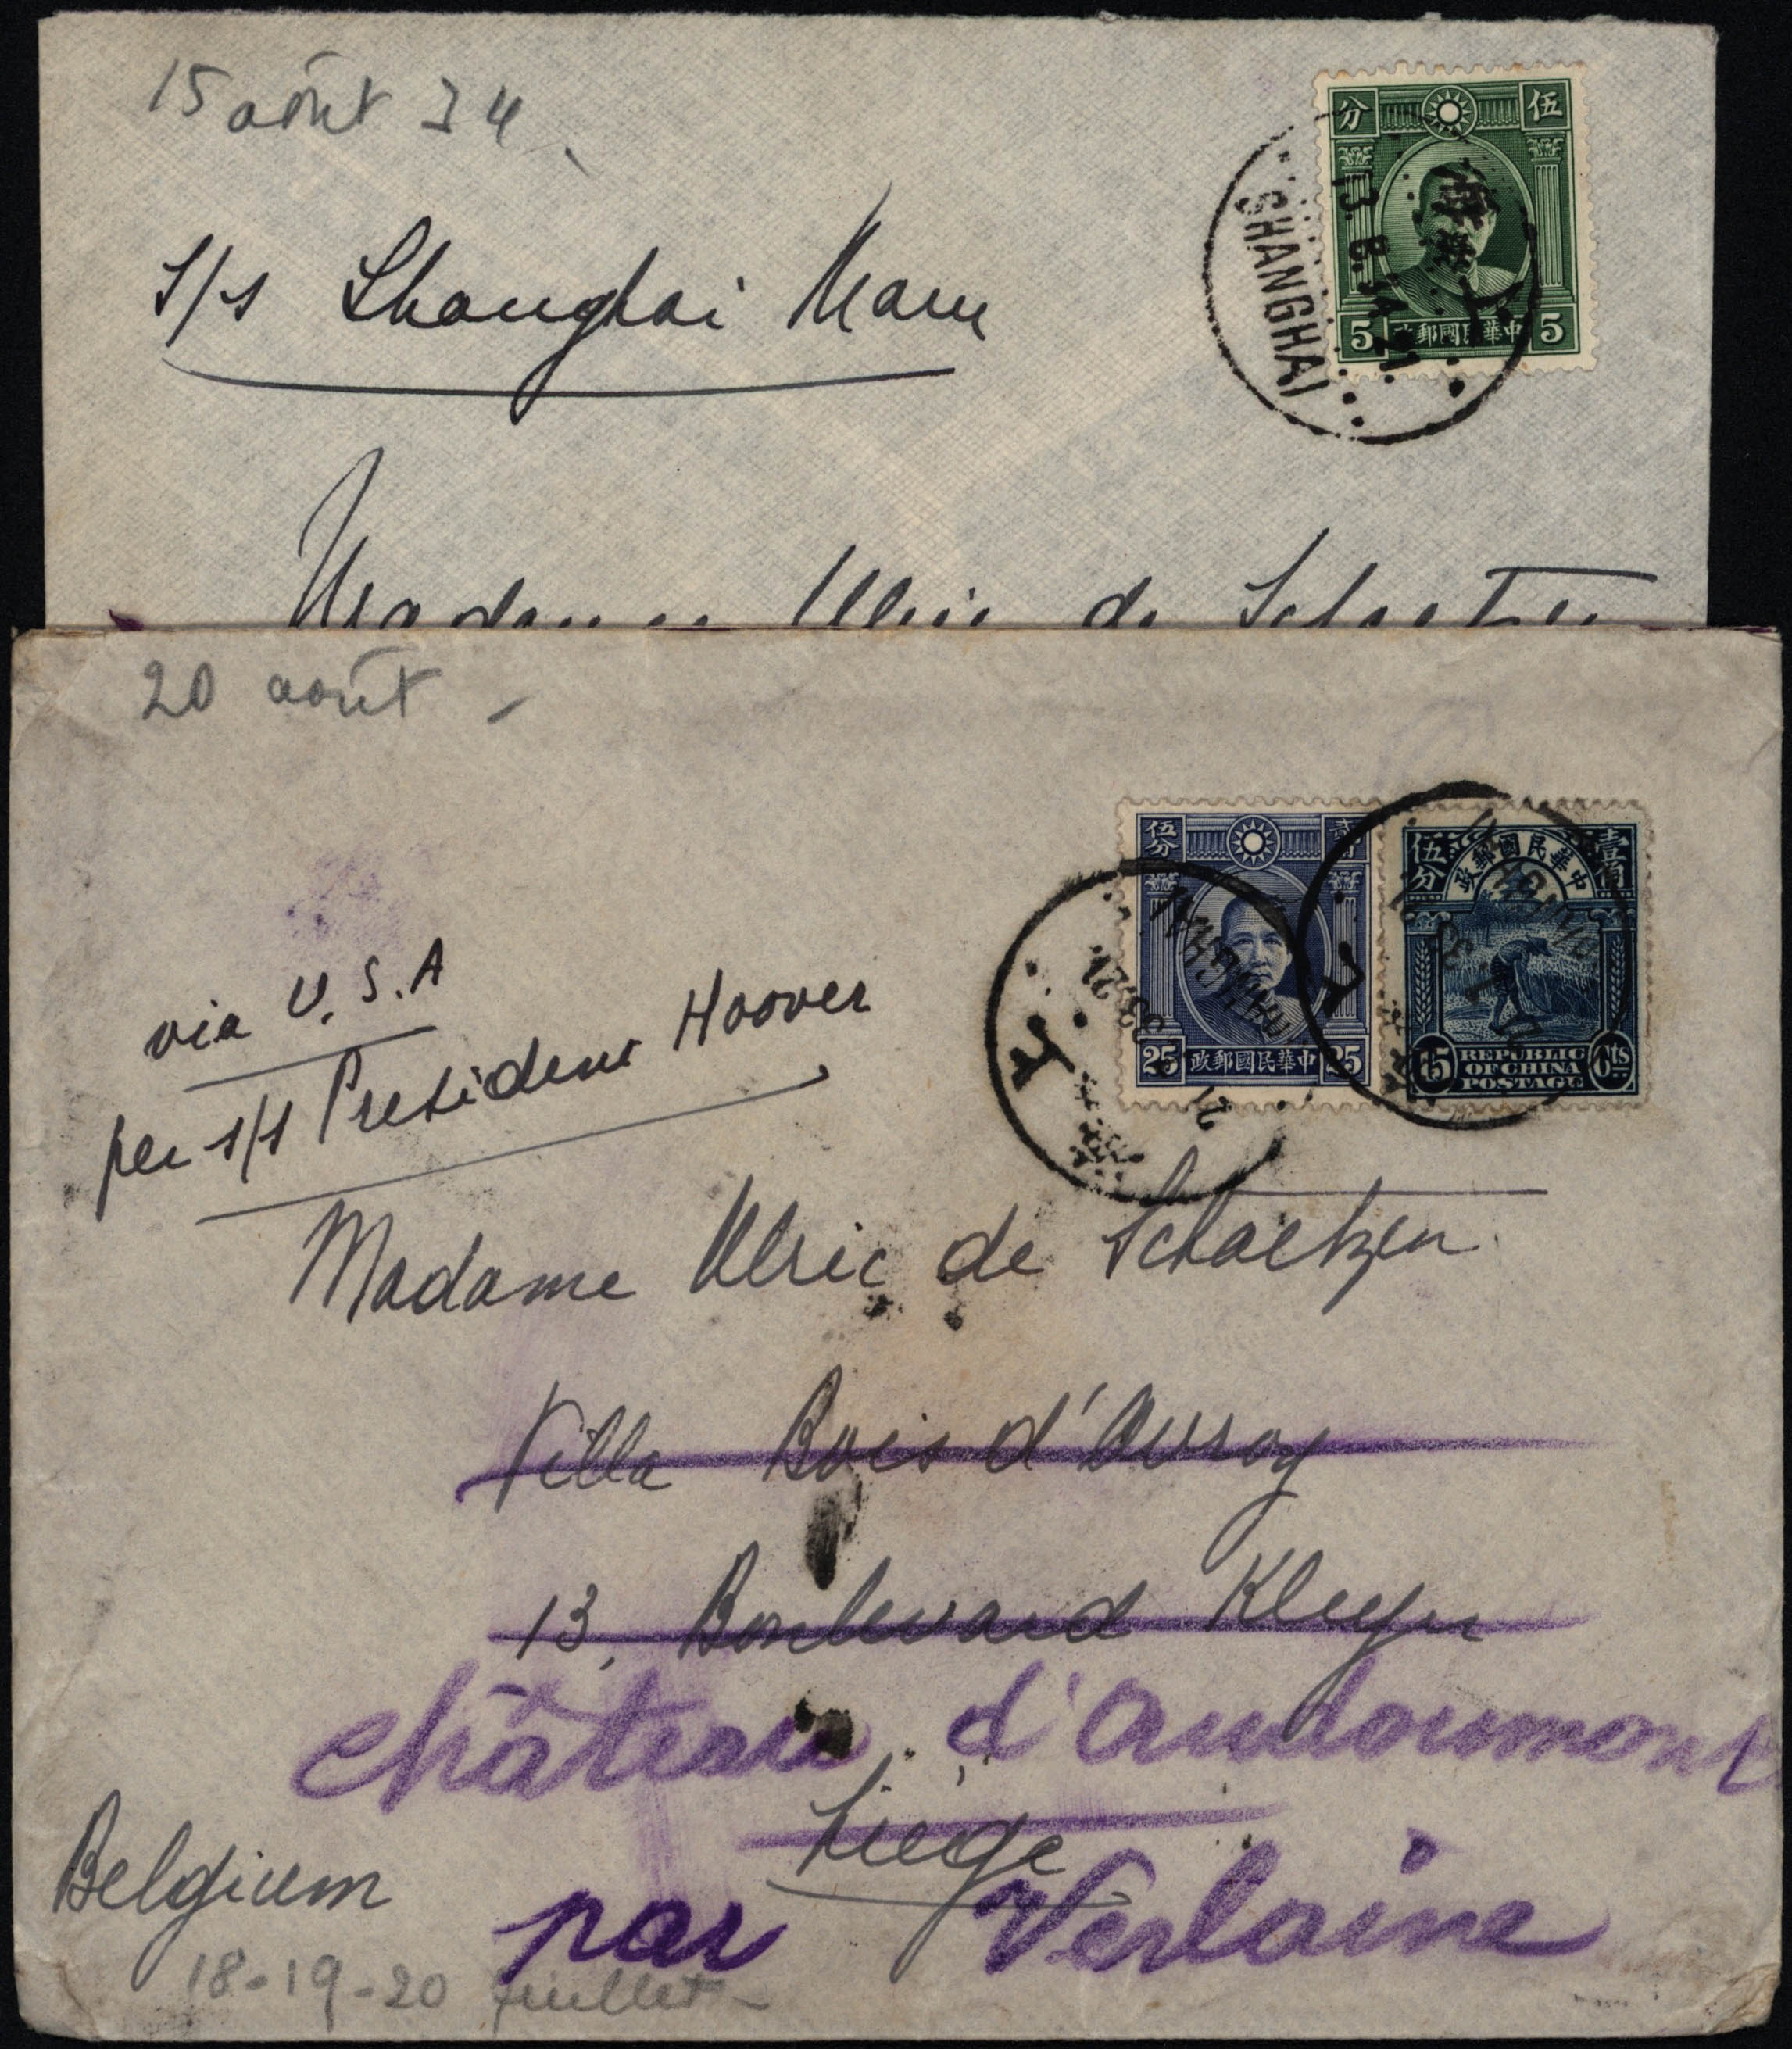 15 août 34
分 伍
5 政郵國民華中 5
SHANGHAI
13. 8. 34. 21.
上
S/s Shanghai Maru
Madame Ulric de Schaetzen
20 août -
伍分 貳角
25 政郵國民華中 25
SHANGHAI
上
伍分 政郵國民華中 壹角
15 REPUBLIC cts
OF CHINA
POSTAGE
上
via U.S.A
per s/s President Hoover
Madame Ulric de Schaetzen
Villa Bois d'Avroy
13, Boulevard Kleyer
château d'Oudoumont
Liège
Belgium
par Verlaine
18-19-20 juillet -